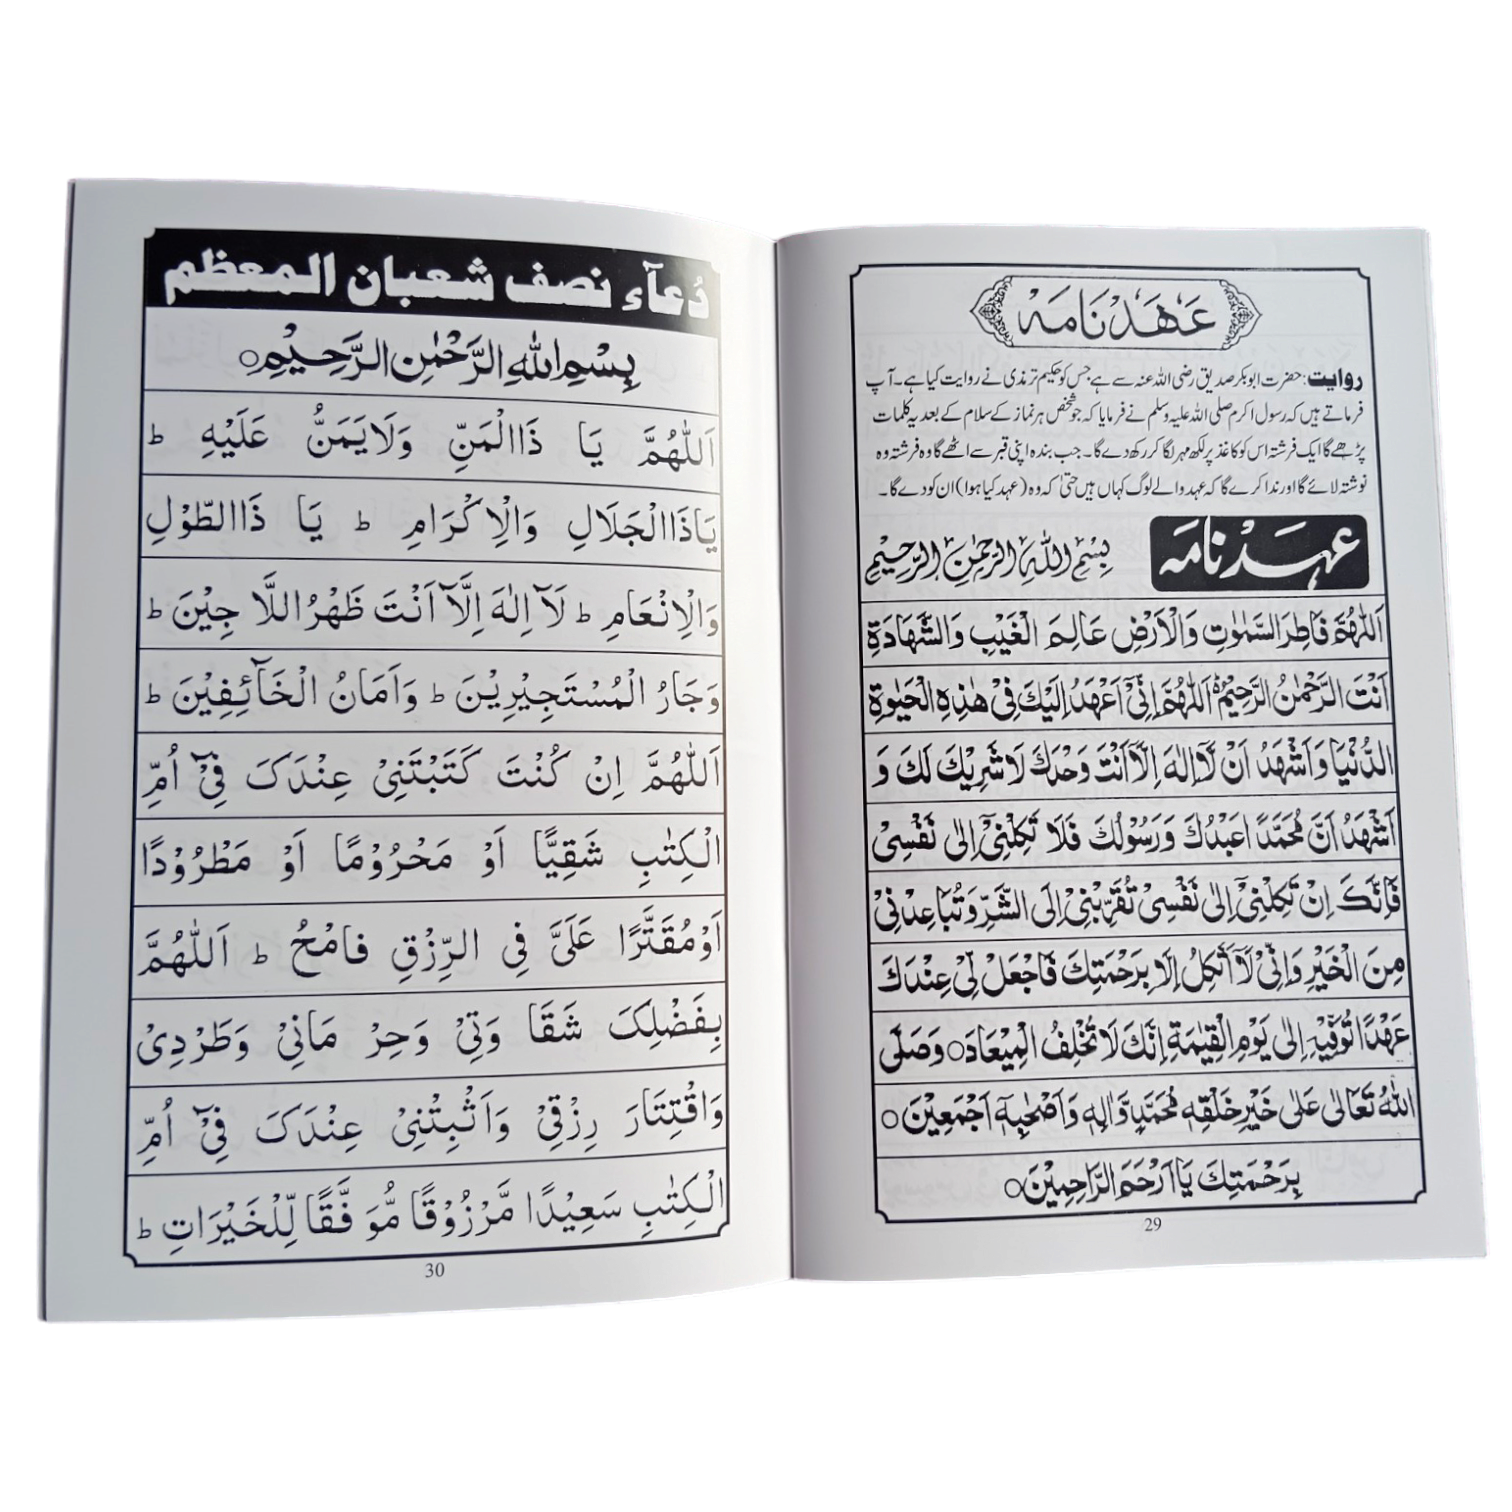 عَهَدْ نَامَہ
روایت: حضرت ابوبکر صدیق رضی اللہ عنہ سے ہے جس کو حکیم ترمذی نے روایت کیا ہے۔ آپ
فرماتے ہیں کہ رسول اکرم صلی اللہ علیہ وسلم نے فرمایا کہ جو شخص ہر نماز کے سلام کے بعد یہ کلمات
پڑھے گا ایک فرشتہ اس کو کاغذ پر لکھ مہر لگا کر رکھ دے گا۔ جب بندہ اپنی قبر سے اٹھے گا وہ فرشتہ وہ
نوشتہ لائے گا اور ندا کرے گا کہ عہد والے لوگ کہاں ہیں حتیٰ کہ وہ (عہد کیا ہوا) ان کو دے گا۔
عہد نامہ
بِسْمِ اللهِ الرَّحْمٰنِ الرَّحِيْمِ
اَللّٰهُمَّ فَاطِرَ السَّمٰوٰتِ وَالْاَرْضِ عَالِمَ الْغَيْبِ وَالشَّهَادَةِ
اَنْتَ الرَّحْمٰنُ الرَّحِيْمُ ؕ اَللّٰهُمَّ اِنِّيْٓ اَعْهَدُ اِلَيْكَ فِيْ هٰذِهِ الْحَيٰوةِ
الدُّنْيَا وَاَشْهَدُ اَنْ لَّآ اِلٰهَ اِلَّآ اَنْتَ وَحْدَكَ لَا شَرِيْكَ لَكَ وَ
اَشْهَدُ اَنَّ مُحَمَّدًا عَبْدُكَ وَرَسُوْلُكَ فَلَا تَكِلْنِيْٓ اِلٰى نَفْسِيْ
فَاِنَّكَ اِنْ تَكِلْنِيْٓ اِلٰى نَفْسِيْ تُقَرِّبْنِيْ اِلَى الشَّرِّ وَتُبَاعِدْنِيْ
مِنَ الْخَيْرِ وَاِنِّيْ لَآ اَتَّكِلُ اِلَّا بِرَحْمَتِكَ فَاجْعَلْ لِّيْ عِنْدَكَ
عَهْدًا تُوَفِّيْهِ اِلٰى يَوْمِ الْقِيٰمَةِ اِنَّكَ لَا تُخْلِفُ الْمِيْعَادَ○ وَصَلَّى
اللهُ تَعَالٰى عَلٰى خَيْرِ خَلْقِهٖ مُحَمَّدٍ وَّاٰلِهٖ وَاَصْحٰبِهٖٓ اَجْمَعِيْنَ○
بِرَحْمَتِكَ يَا اَرْحَمَ الرَّاحِمِيْنَ○
29
دُعآء نصف شعبان المعظم
بِسْمِ اللهِ الرَّحْمٰنِ الرَّحِيْمِ○
اَللّٰهُمَّ يَا ذَاالْمَنِّ وَلَا يَمَنُّ عَلَيْهِ ط
يَاذَاالْجَلَالِ وَالْاِكْرَامِ ط يَا ذَاالطَّوْلِ
وَالْاِنْعَامِ ط لَآ اِلٰهَ اِلَّآ اَنْتَ ظَهْرُ اللَّا جِيْنَ ط
وَجَارُ الْمُسْتَجِيْرِيْنَ ط وَاَمَانُ الْخَآئِفِيْنَ ط
اَللّٰهُمَّ اِنْ كُنْتَ كَتَبْتَنِيْ عِنْدَكَ فِيْٓ اُمِّ
الْكِتٰبِ شَقِيًّا اَوْ مَحْرُوْمًا اَوْ مَطْرُوْدًا
اَوْ مُقَتَّرًا عَلَيَّ فِي الرِّزْقِ فَامْحُ ط اَللّٰهُمَّ
بِفَضْلِكَ شَقَا وَتِيْ وَحِرْ مَانِيْ وَطَرْدِيْ
وَاقْتِتَارَ رِزْقِيْ وَاَثْبِتْنِيْ عِنْدَكَ فِيْٓ اُمِّ
الْكِتٰبِ سَعِيْدًا مَّرْزُوْقًا مُّوَ فَّقًا لِّلْخَيْرَاتِ ط
30